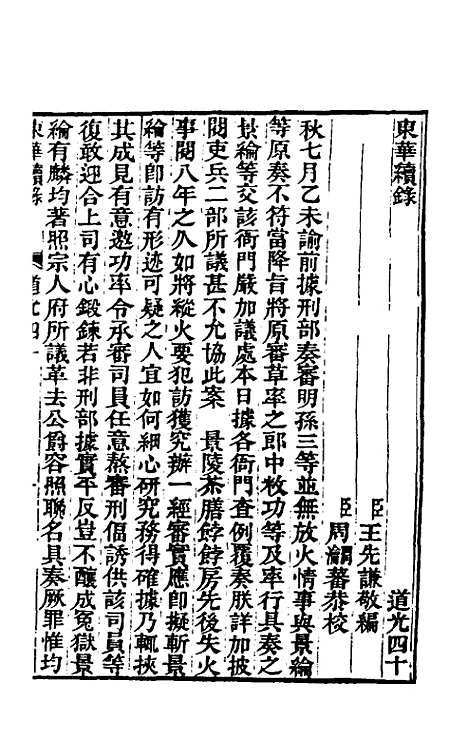 東華續錄
道光四十
臣王先謙敬編
臣周瀹蕃恭校
秋七月乙未諭前據刑部奏審明孫三等並無放火情事與景綸
等原奏不符當降旨將原審草率之郎中枚功等及率行具奏之
景綸等交該衙門嚴加議處本日據各衙門查例覆奏朕詳加披
閱吏兵二部所議甚不允協此案景陵茶膳餑餑房先後失火
事閱八年之久如將縱火要犯訪獲究辦一經審實應卽擬斬景
綸等卽訪有形迹可疑之人宜如何細心研究務得確據乃輒挾
其成見有意邀功率令承審司員任意熬審刑偪誘供該司員等
復敢迎合上司有心鍛鍊若非刑部據實平反豈不釀成冤獄景
綸有麟均著照宗人府所議革去公爵容照聯名具奏厥罪惟均
東華續錄
道光四十